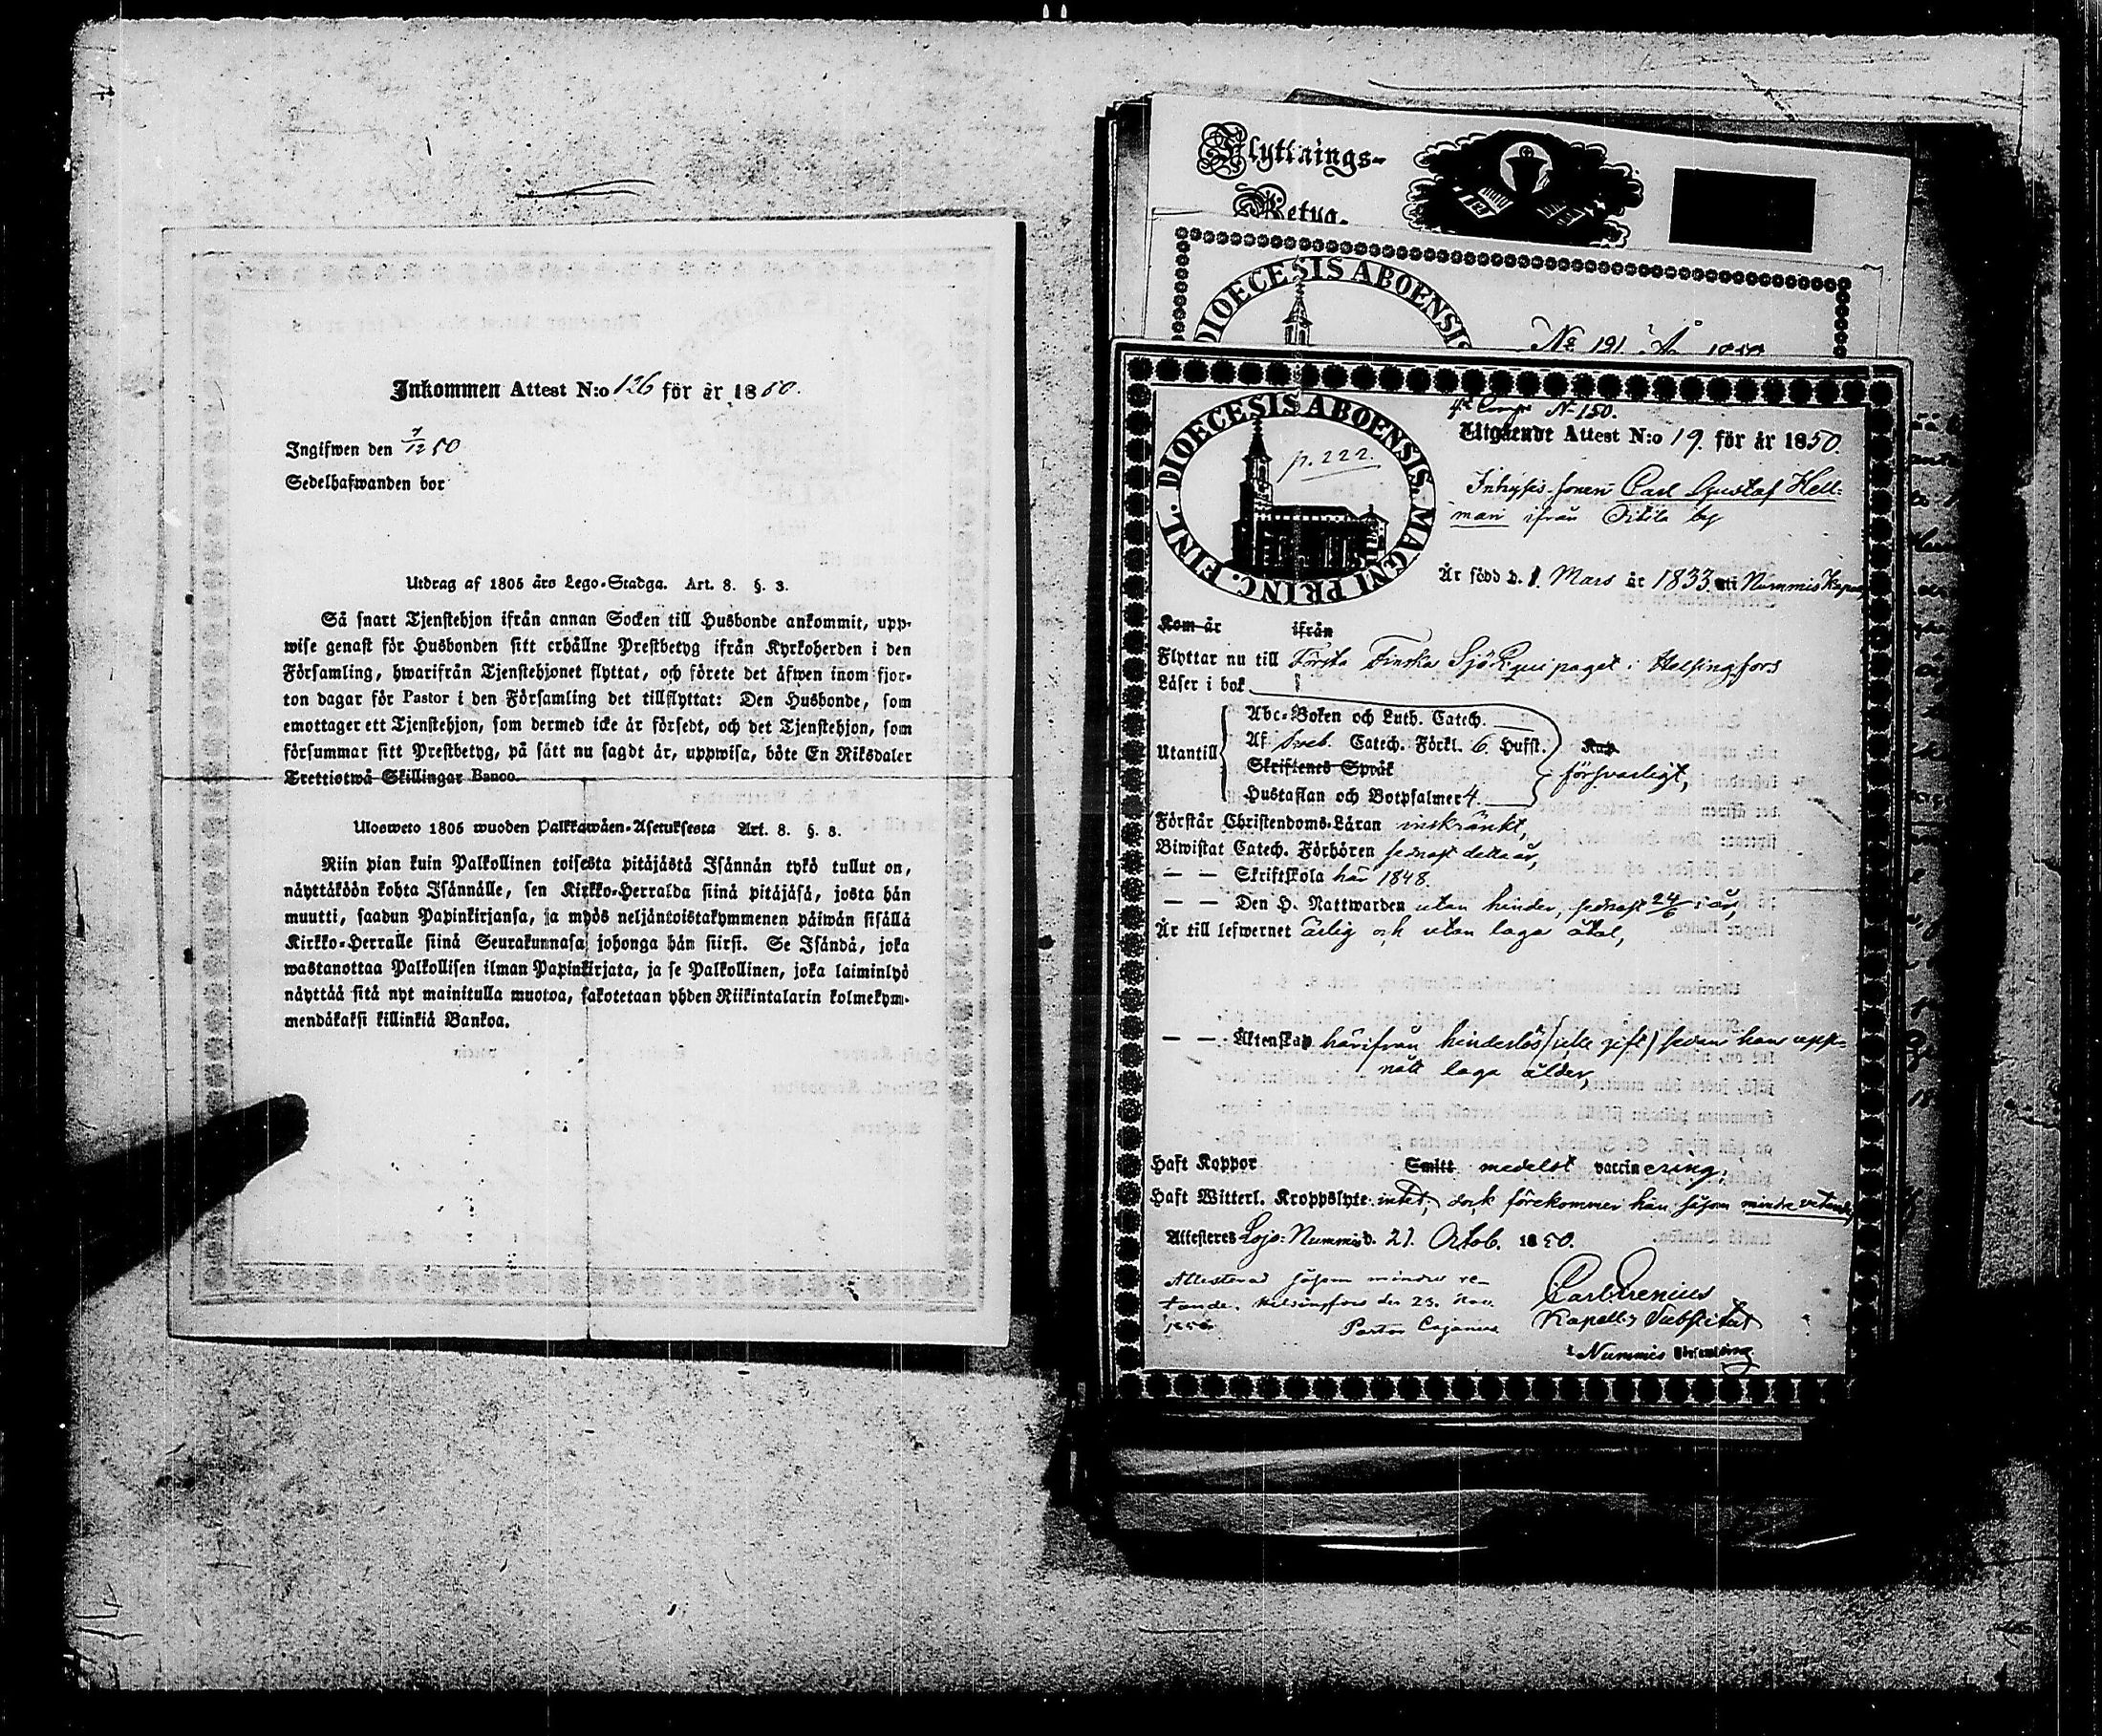 Inkommen Attest N:o 126 för år 1850.
Ingifwen den 7/12 50
Sedelhafwanden bor
Utdrag af 1805 års Lego-Stadga. Art. 8. §. 3.
Så snart Tjenstehjon ifrån annan Socken till Husbonde ankommit, upp-
wise genast för Husbonden sitt erhållne Prestbetyg ifrån Kyrkoherden i den
Församling, hwarifrån Tjenstehjonet flyttat, och förete det äfwen inom fjor-
ton dagar för Pastor i den Församling det tillflyttat: Den Husbonde, som
emottager ett Tjenstehjon, som dermed icke är försedt, och det Tjenstehjon, som
försummar sitt Prestbetyg, på sätt nu sagdt är, uppwisa, böte En Riksdaler
Trettiotwå Skillingar Banco.
Ulosweto 1805 wuoden Palkkawäen-Asetuksesta Art. 8. §. 3.
Niin pian kuin Palkollinen toisesta pitäjästä Isännän tykö tullut on,
näyttäköön kohta Isännälle, sen Kirkko-Herralda siinä pitäjäsä, josta hän
muutti, saadun Papinkirjansa, ja myös neljäntoistakymmenen päiwän sisällä
Kirkko-Herralle siinä Seurakunnasa johonga hän siirsi. Se Isändä, joka
wastanottaa Palkollisen ilman Papinkirjata, ja se Palkollinen, joka laiminlyö
näyttää sitä nyt mainitulla muotoa, sakotetaan yhden Riikintalarin kolmekym-
mendäkaksi killinkiä Bankoa.
Flyttnings-
Betyg.
DIOECESIS ABOENSIS
No 191 År 1850
DIOECESIS ABOENSIS. MAGNI PRINC. FINL.
p. 222.
4de Comp. No 150.
Utgående Attest N:o 19. för år 1850.
Inhyses-sonen Carl Gustaf Hell-
man ifrån Oitila by
Är född d. 1. Mars år 1833 uti Nummis Kapell
Kom år ifrån
Flyttar nu till Första Finska Sjö Equipaget i Helsingfors
Läser i bok
Utantill
Abc-Boken och Luth. Catech.
Af Sveb. Catech. Förkl. 6 Hufst.
Skriftenes Språk
Hustaflan och Botpsalmer 4.
försvarligt,
Förstår Christendoms-Läran inskränkt,
Biwistat Catech. Förhören sednast detta år,
— — Skriftskola här 1848.
— — Den H. Nattwarden utan hinder, sednast 24/6 i år,
Är till lefwernet ärlig och utan laga åtal,
— — Äktenskap härifrån hinderlös (icke gift) sedan han upp-
nått laga ålder,
Haft Koppor Smitt medelst vaccinering,
Haft Witterl. Kroppslyte intet, dock förekommer han såsom mindre vetande,
Attesteras Lojo: Nummis d. 21. Octob. 1850.
Attesterad såsom mindre ve-
tande. Helsingfors den 23. Nov.
1850. Pastor Cajanus
Carl Arenius
Kapell:s Substitut
i Nummis Församling